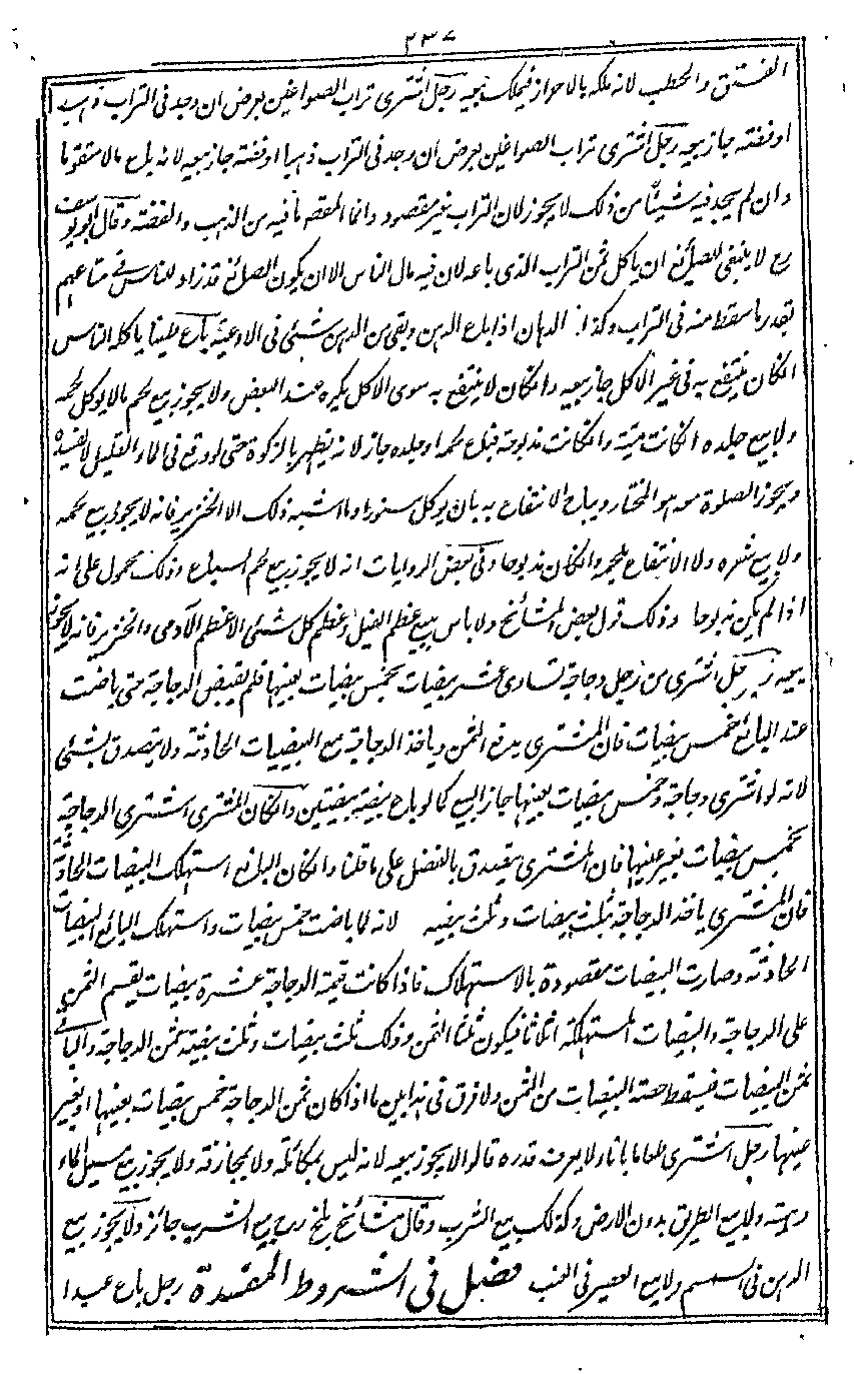 ٢٣٧
الفستق والحطب لانه ملكه بالاحراز فيملك بيعه رجل اشترى تراب الصواغين بعرض ان وجد فى التراب ذهبا
او فضة جاز بيعه رجل اشترى تراب الصواغين بعرض ان وجد فى التراب ذهبا او فضة جاز بيعه لانه باع مالا متقوما
وان لم يجد فيه شيئا من ذلك لا يجوز لان التراب غير مقصود وانما المقصود ما فيه من الذهب والفضة وقال ابو يوسف
رح لا ينبغى للصائغ ان ياكل ثمن التراب الذى باعه لان فيه مال الناس الا ان يكون الصائغ قد زاد للناس فى متاعهم
بقدر ما سقط منه فى التراب وكذا الدهان اذا باع الدهن وبقى من الدهن شئ فى الاوعية باع طينا ياكله الناس
انكان ينتفع به فى غير الاكل جاز بيعه وانكان لا ينتفع به سوى الاكل يكره عند البعض ولا يجوز بيع لحم مالا يوكل لحمه
ولا بيع جلده انكانت ميتة وانكانت مذبوحة فباع لحمه او جلده جاز لانه يطهر بالذكوة حتى لو وقع فى الماء القليل لا يفسده
ويجوز الصلوة معه هو المختار ويباح الانتفاع به بان يوكل سنورا وما اشبه ذلك الا الخنزير فانه لا يجوز بيع لحمه
ولا بيع شعره ولا الانتفاع بلحمه وانكان مذبوحا وفى بعض الروايات انه لا يجوز بيع لحم السباع وذلك محمول على انه
اذا لم يكن مذبوحا وذلك قول بعض المشائخ ولا باس ببيع عظم الفيل وعظم كل شئ الا عظم الآدمى والخنزير فانه لا يجوز
بيعه رجل اشترى من رجل دجاجة تساوى عشر بيضات بخمس بيضات بعينها فلم يقبض الدجاجة حتى باضت
عند البائع خمس بيضات فان المشترى يدفع الثمن وياخذ الدجاجة مع البيضات الحادثة ولا يتصدق بشئ
لانه لو اشترى دجاجة وخمس بيضات بعينها جاز البيع كما لو باع بيضة ببيضتين وانكان المشترى اشترى الدجاجة
بخمس بيضات بغير عينها فان المشترى يتصدق بالفضل على ما قلنا وانكان البائع استهلك البيضات الحادثة
فان المشترى ياخذ الدجاجة بثلث بيضات وثلث بيضة لانه لما باضت خمس بيضات واستهلك البائع البيضات
الحادثة وصارت البيضات مقصودة بالاستهلاك فاذا كانت قيمة الدجاجة عشرة بيضات يقسم الثمن
على الدجاجة والبيضات المستهلكة اثلاثا فيكون ثلثا الثمن وذلك ثلث بيضات وثلث بيضة ثمن الدجاجة والباقى
ثمن البيضات فيسقط حصة البيضات من الثمن ولا فرق فى هذا بين ما اذا كان ثمن الدجاجة خمس بيضات بعينها او بغير
عينها رجل اشترى طعاما باناء ولا يعرف قدره قالوا لا يجوز بيعه لانه ليس بمكائلة ولا مجازفة ولا يجوز بيع مسيل الماء
وهبته ولا بيع الطريق بدون الارض وكذلك بيع الشرب وقال مشائخ بلخ رح بيع الشرب جائز ولا يجوز بيع
الدهن فى السمسم ولا بيع العصير فى العنب فصل فى الشروط المفسدة رجل باع عبدا